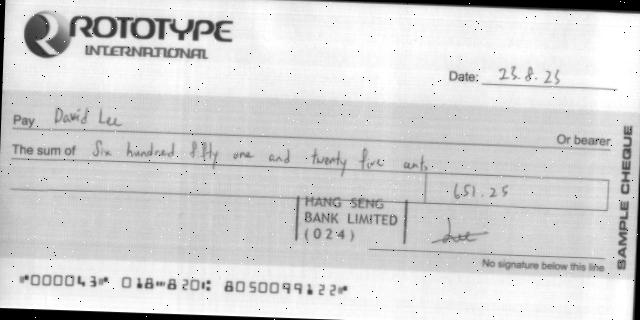 ROTOTYPE
INTERNATIONAL
Date: 23.8.23
Pay David Lee
Or bearer
The sum of Six hundred fifty one and twenty five cents
651.25
HANG SENG
BANK LIMITED
(024)
No signature below this line
SAMPLE CHEQUE
⑈000043⑈ 018⑉820⑆ 8050099122⑈